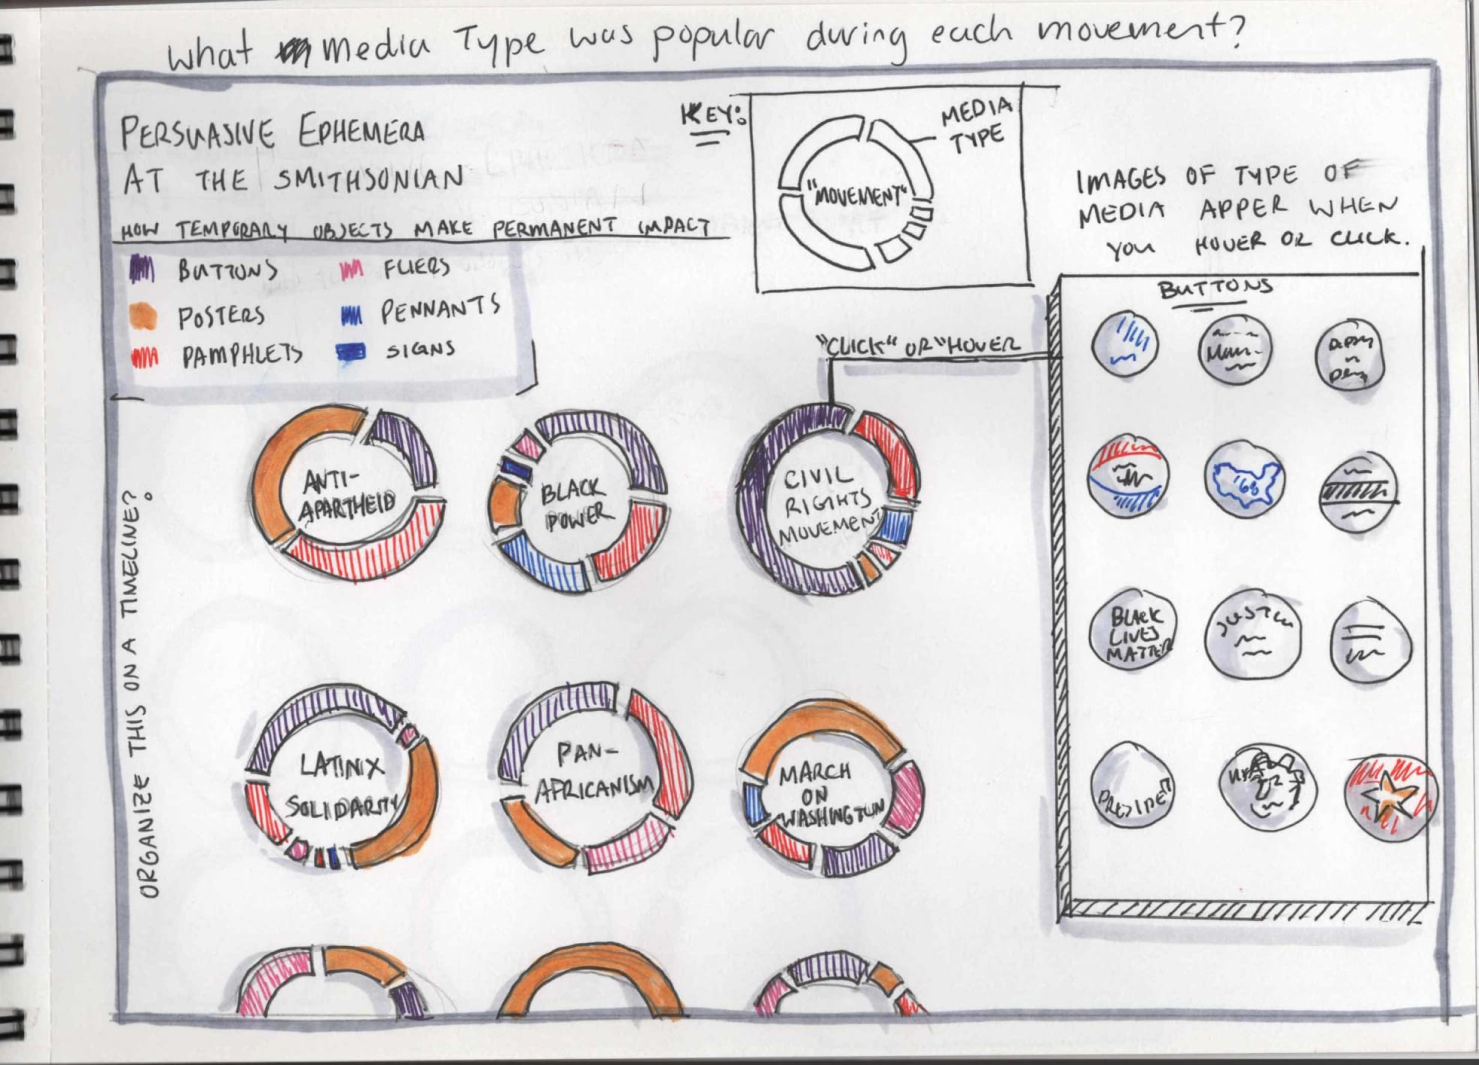 what media Type was popular during each movement?
PERSUASIVE EPHEMERA
AT THE SMITHSONIAN
HOW TEMPORARY OBJECTS MAKE PERMANENT IMPACT
BUTTONS
POSTERS
PAMPHLETS
FLIERS
PENNANTS
SIGNS
KEY:
"MOVEMENT"
MEDIA
TYPE
IMAGES OF TYPE OF
MEDIA APPER WHEN
YOU HOVER OR CLICK.
"CLICK" OR "HOVER
BUTTONS
'68
BLACK
LIVES
MATTER
ORGANIZE THIS ON A TIMELINE?
ANTI-
APARTHEID
BLACK
POWER
CIVIL
RIGHTS
MOVEMENT
LATINX
SOLIDARITY
PAN-
AFRICANISM
MARCH
ON
WASHINGTON